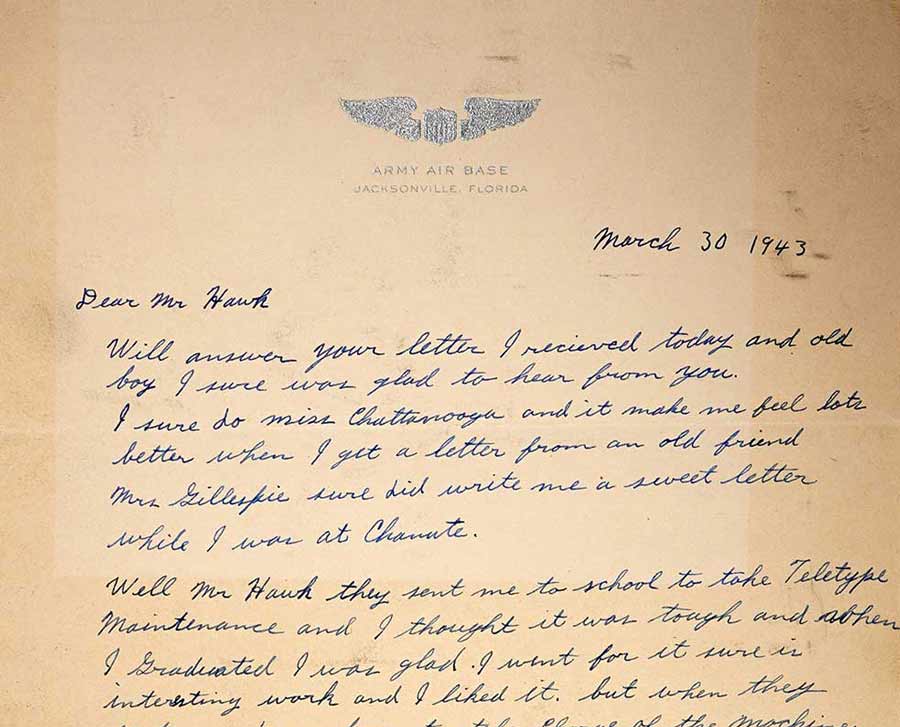 ARMY AIR BASE
JACKSONVILLE, FLORIDA
March 30 1943
Dear Mr Hawk
Will answer your letter I recieved today and old
boy I sure was glad to hear from you.
I sure do miss Chattanooga and it make me feel lots
better when I get a letter from an old friend
Mrs Gillespie sure did write me a sweet letter
while I was at Chanute.
Well Mr Hawk they sent me to school to take Teletype
Maintenance and I thought it was tough and when
I Graduated I was glad. I went for it sure is
interesting work and I liked it. but when they
Charge of the Machine